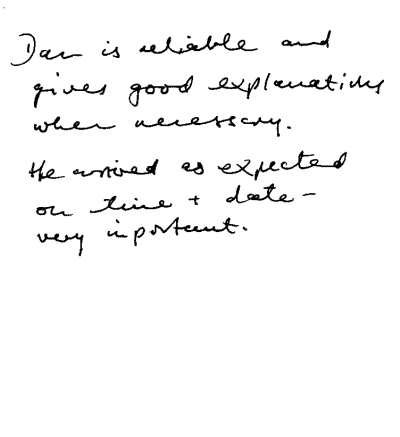 Dan is reliable and
gives good explanations
when necessary.
He arrived as expected
on time + date -
very important.